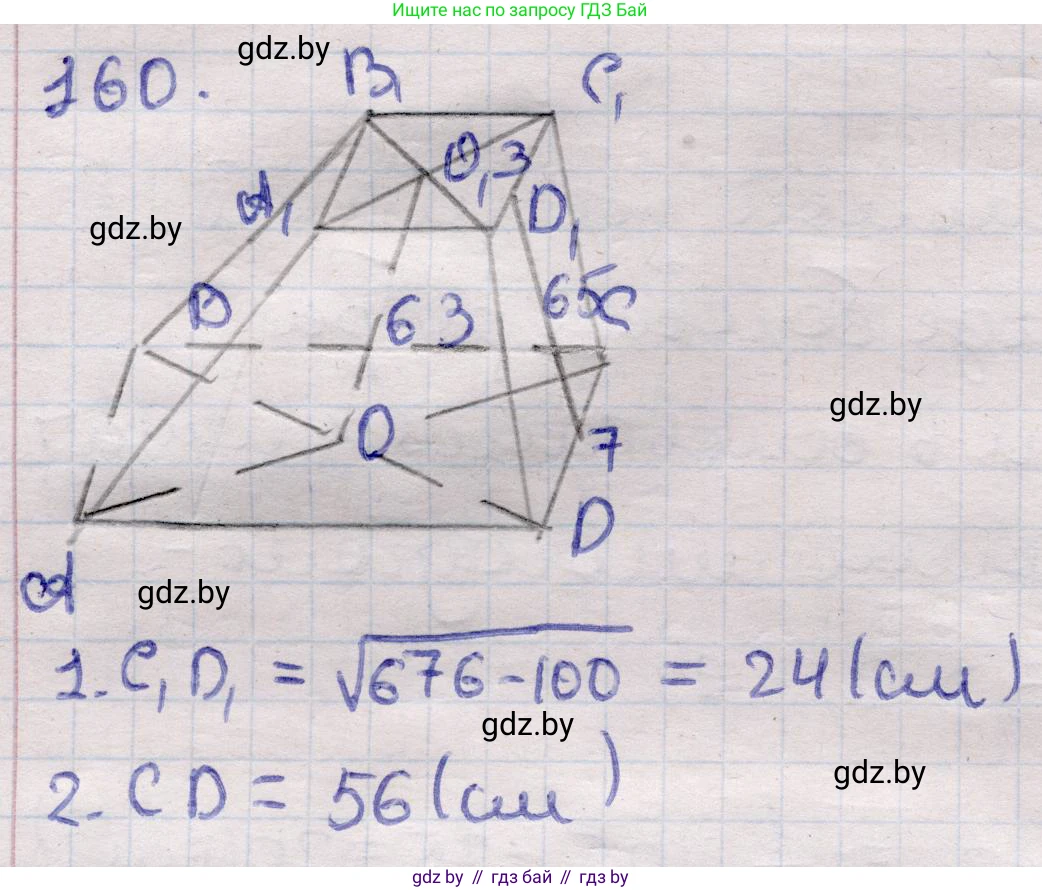 Ищите нас по запросу ГДЗ Бай
gdz.by
160.
B₁ C₁
O₁ 3
A₁ D₁
gdz.by
B 63 65 C
gdz.by
O 7
D
A
gdz.by
1. C₁D₁ = √676-100 = 24 (см)
gdz.by
2. CD = 56 (см)
gdz.by
gdz.by // гдз бай // гдз by